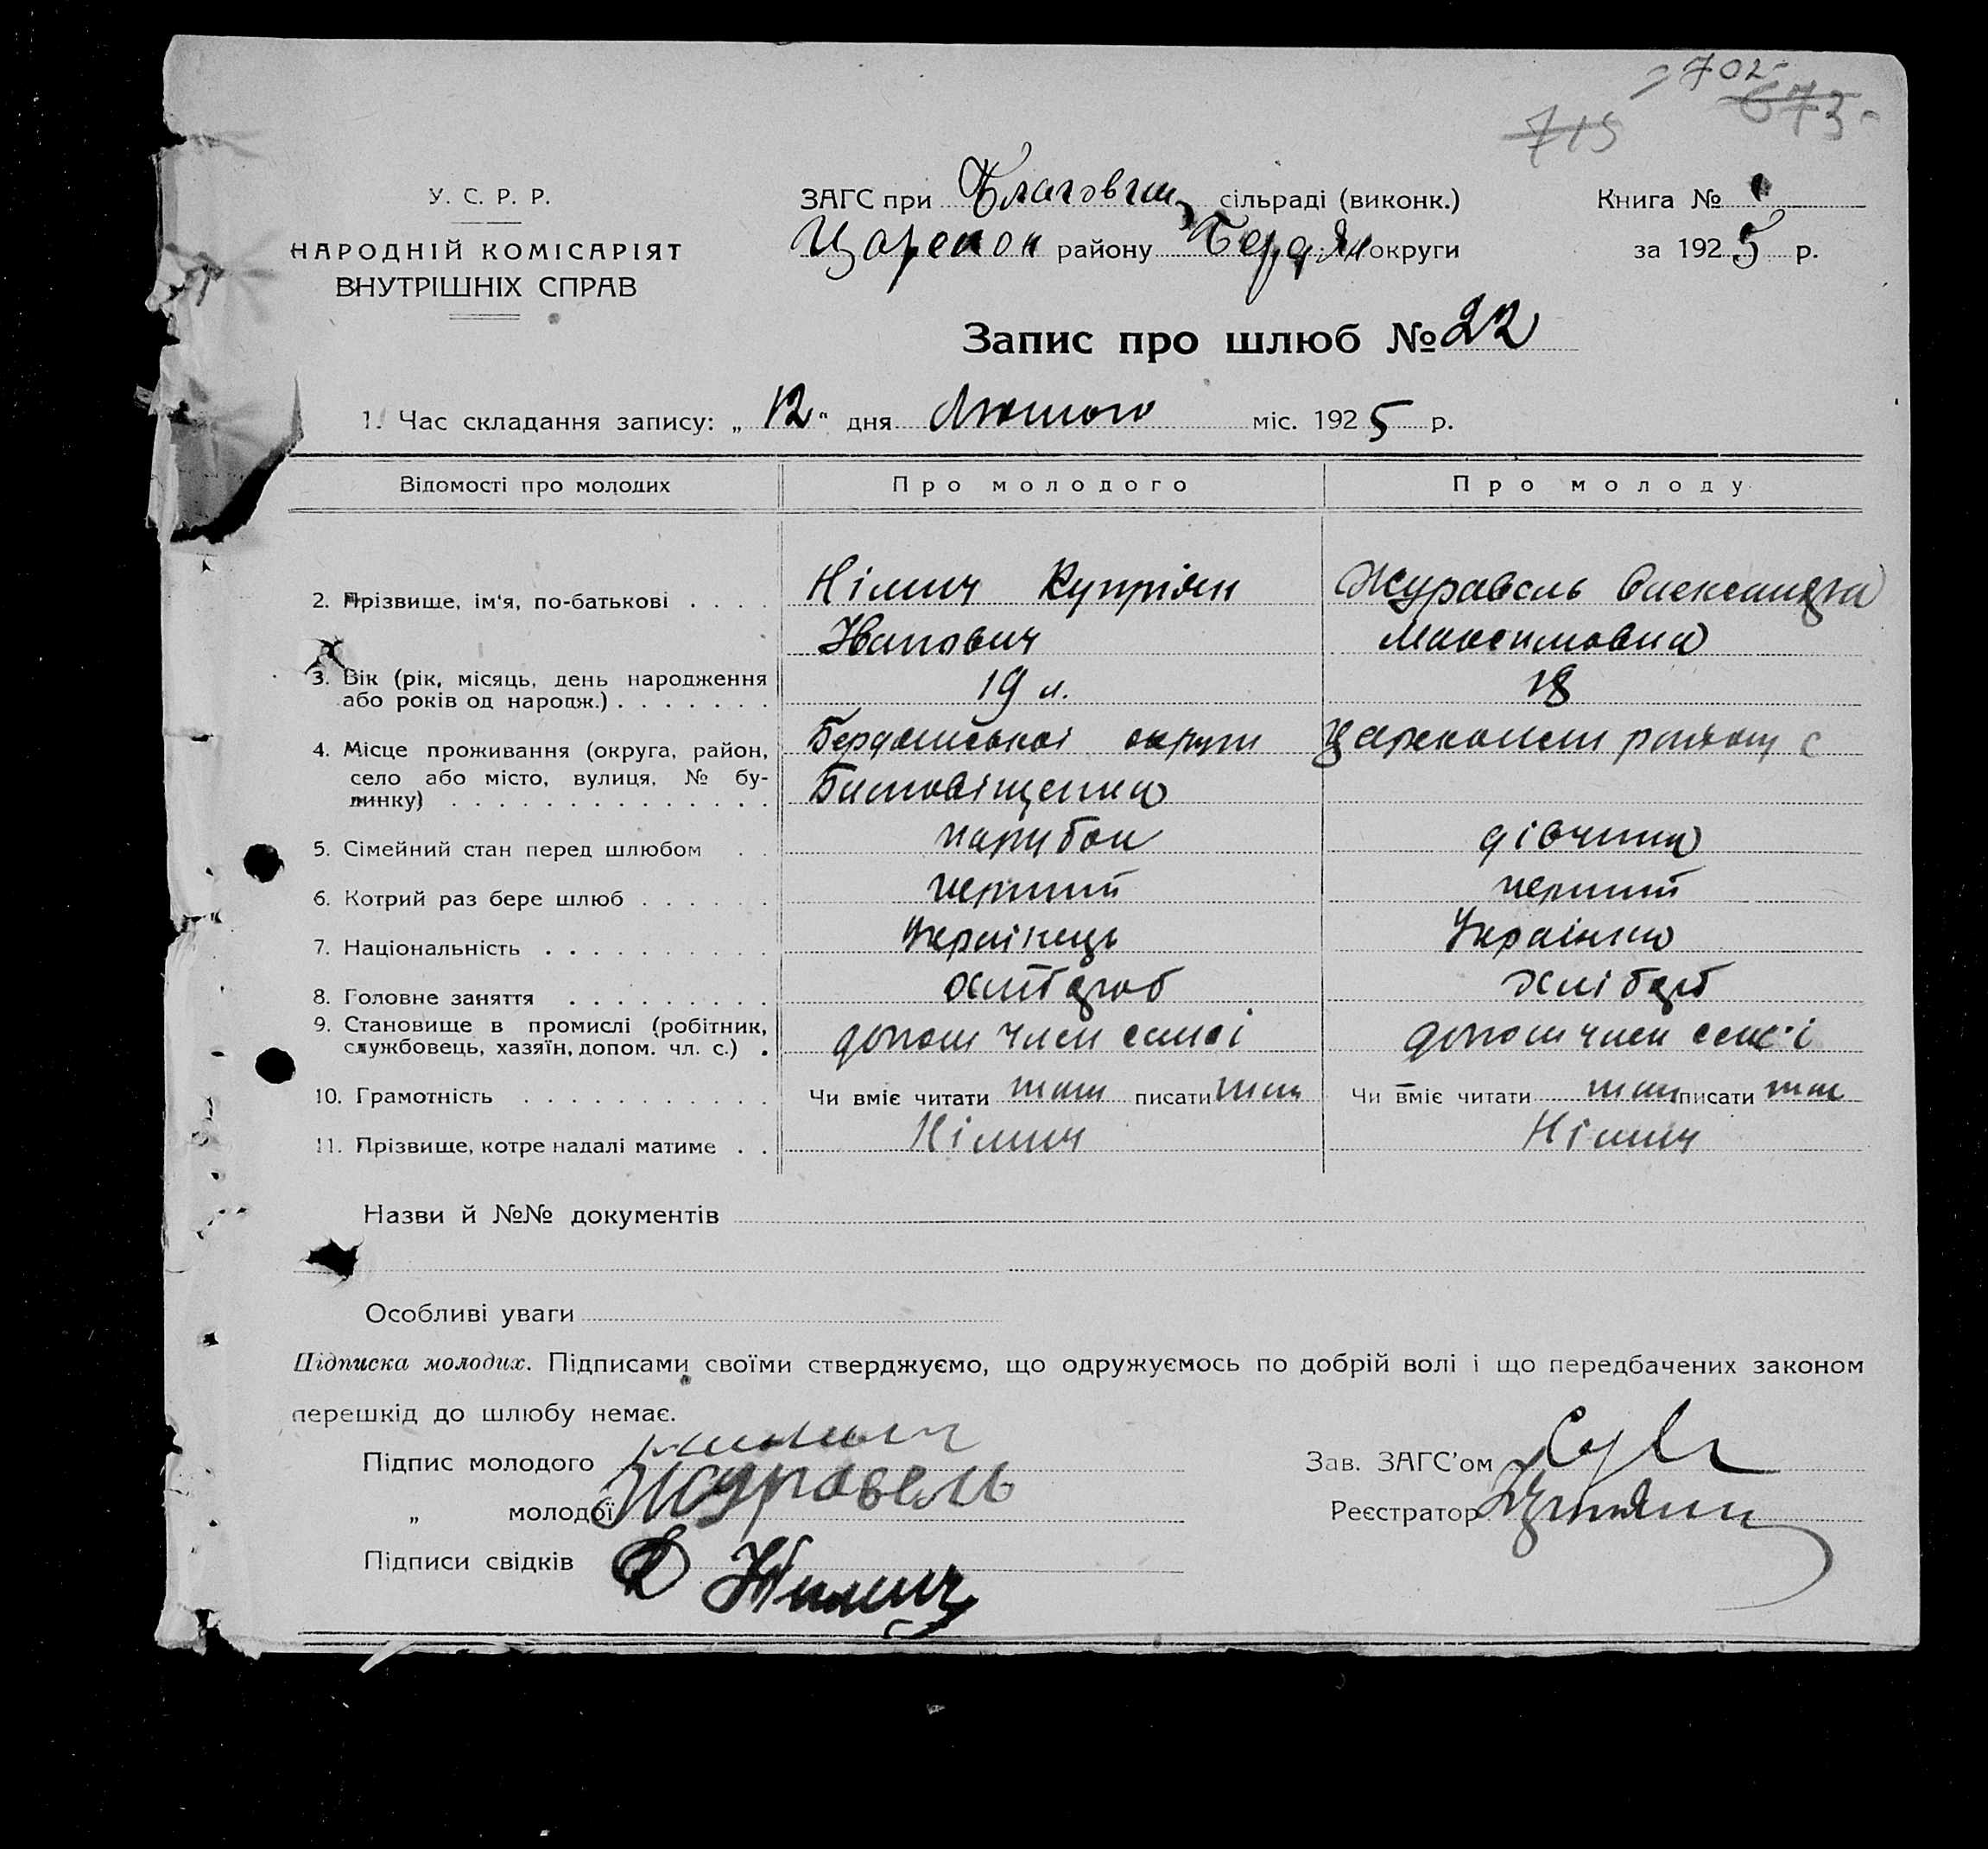 702
673
715
У. С. Р. Р.
НАРОДНІЙ КОМІСАРІЯТ
ВНУТРІШНІХ СПРАВ
ЗАГС при Благовіщ сільраді (виконк.)
Царекон району Бердян округи
Книга №
за 1925 р.
Запис про шлюб № 22
1. Час складання запису: „ 12 “ дня Лютого міс. 1925 р.
Відомості про молодих Про молодого Про молоду
2. Прізвище, ім'я, по-батькові . . . . Нілич Купріян Журавель Олександра
Іванович Максимовна
3. Вік (рік, місяць, день народження 19 л. 18
або років од народж.) . . . . . . .
4. Місце проживання (округа, район, Бердянської округи Царекон району с
село або місто, вулиця, № бу- Благовіщенка
динку) . . . . . . . . . . . . . .
5. Сімейний стан перед шлюбом . . парубок дівчина
6. Котрий раз бере шлюб . . . . . . перший перший
7. Національність . . . . . . . . . . Українець Українка
8. Головне заняття . . . . . . . . . хлібороб хлібороб
9. Становище в промислі (робітник, допом член семьі допом член семьі
службовець, хазяїн, допом. чл. с.) .
10. Грамотність . . . . . . . . . . . Чи вміє читати так писати так Чи вміє читати так писати так
11. Прізвище, котре надалі матиме . . Нілич Нілич
Назви й №№ документів
Особливі уваги
Підписка молодих. Підписами своїми стверджуємо, що одружуємось по добрій волі і що передбачених законом
перешкід до шлюбу немає.
Підпис молодого
Зав. ЗАГС'ом
„ молодої Журавель
Реєстратор
Підписи свідків Нилич